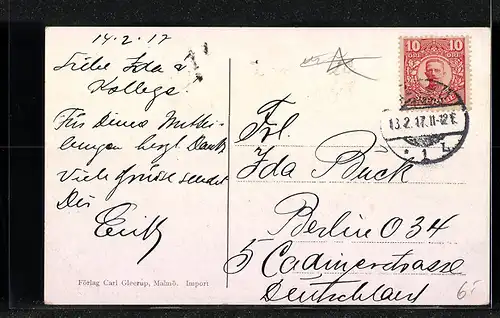 14.2.17
Liebe Ida &
Kollege
Für Deine Mittei-
lungen hzgl Dank
Viele Grüsse sendet
Dir
Erik
Förlag Carl Gleerup, Malmö. Import
10 10
13.2.17.11-12F.
* 1 L
Frl.
Ida Buck
Berlin O 34
5 Cadinerstrasse
Deutschland